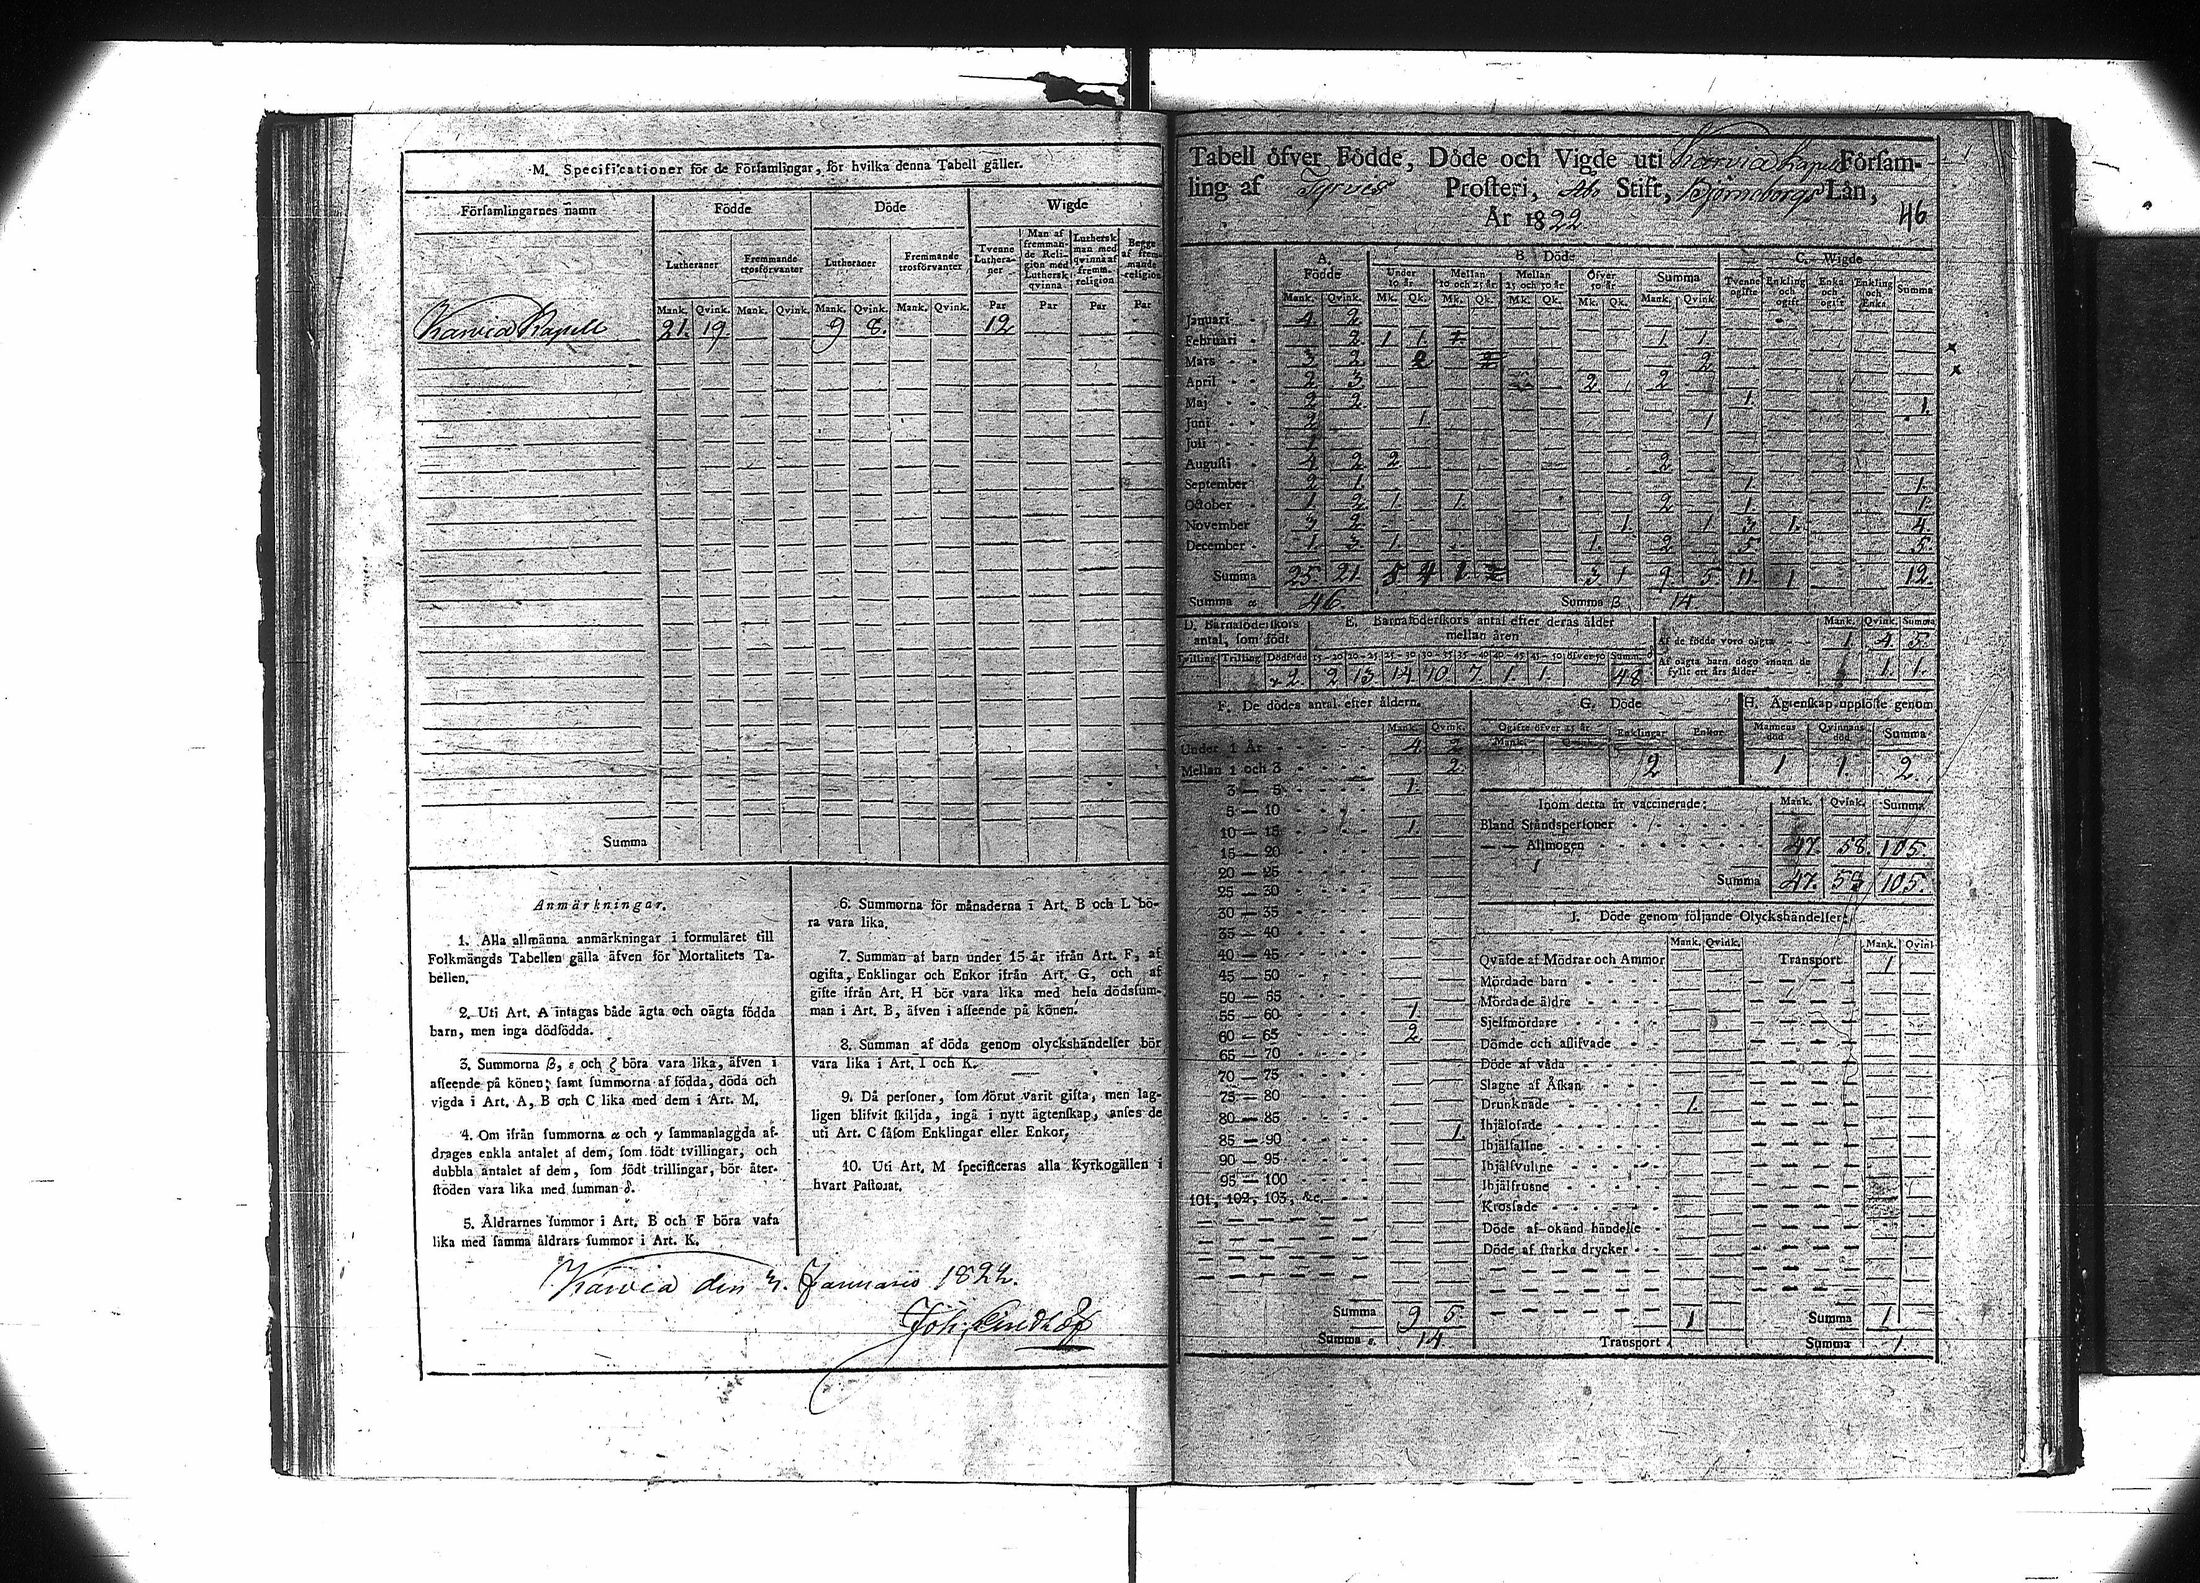 M. Specificationer för de Församlingar, för hvilka denna Tabell gäller.
Församlingarnes namn Födde Döde Wigde
Lutheraner Fremmande trosförvanter Lutheraner Fremmande trosförvanter Tvenne Lutheraner Man af fremmande Religion med Luthersk qvinna Luthersk man med qvinna af fremm. religion Begge af fremmande religion
Mank. Qvink. Mank. Qvink. Mank. Qvink. Mank. Qvink. Par Par Par Par
Karvia Kapell 21. 19 9 8. 12
Summa
Anmärkningar.
1. Alla allmänna anmärkningar i formuläret till
Folkmängds Tabellen gälla äfven för Mortalitets Ta-
bellen.
2. Uti Art. A intagas både ägta och oägta födda
barn, men inga dödfödda.
3. Summorna β, ε och ζ böra vara lika, äfven i
afseende på könen; samt summorna af födda, döda och
vigda i Art. A, B och C lika med dem i Art. M.
4. Om ifrån summorna α och γ sammanlaggda af-
drages enkla antalet af dem, som födt tvillingar, och
dubbla antalet af dem, som födt trillingar, bör åter-
stoden vara lika med summan δ.
5. Åldrarnes summor i Art. B och F böra vara
lika med samma åldrars summor i Art. K.
6. Summorna för månaderna i Art. B och L bö-
ra vara lika.
7. Summan af barn under 15 år ifrån Art. F, af
ogifta, Enklingar och Enkor ifrån Art. G, och af
gifte ifrån Art. H bör vara lika med hela dödssum-
man i Art. B, äfven i afseende på könen.
8. Summan af döda genom olyckshändelser bör
vara lika i Art. I och K.
9. Då personer, som förut varit gifta, men lag-
ligen blifvit skiljda, ingå i nytt ägtenskap, anses de
uti Art. C såsom Enklingar eller Enkor.
10. Uti Art. M specificeras alla Kyrkogällen i
hvart Pastorat.
Karvia den 3. Januario 1822.
Joh. Lindlöf
Tabell öfver Födde, Döde och Vigde uti Karvia Kapell Församling
ling af Tyrvis Prosteri, Åbo Stift, Björneborgs Län,
År 1822.
46
A. Födde B. Döde C. Wigde
Under 10 år Mellan 10 och 25 år Mellan 25 och 50 år Öfver 50 år Summa Tvenne ogifte Enkling och ogift Enka och ogift Enkling och Enka Summa
Mank. Qvink. Mk. Qk. Mk. Qk. Mk. Qk. Mk. Qk. Mank. Qvink.
Januari 4 2
Februari 2 1 1 1 1
Mars 3 2 2 2
April 2 3 2 2
Maj 2 2 1 1.
Juni 2 1 1
Juli 1
Augusti 4 2 2 2
September 2 1. 1 1.
October 1 2 1 1. 2 1. 1.
November 3 2 1. 1 3 1. 4.
December 1 3. 1. 1. 2 5 5.
Summa 25. 21. 3 1 9 5 11 1 12.
Summa α 46. Summa β 14.
D. Barnaföderskors antal, som födt
E. Barnaföderskors antal efter deras ålder mellan åren
Trilling Dödfödd 15-20 20-25 25-30 30-35 35-40 40-45 45-50 öfver 50 Summa δ
2 2 13 14 10 7. 1. 1. 48
Mank. Qvink. Summa
Af de födde voro oägta 1 4. 5.
Af oägta barn dögo innan de fyllt ett års ålder 1 1.
F. De dödes antal efter åldern.
Mank. Qvink.
Under 1 År 4 2
Mellan 1 och 3 2.
3 — 5 1.
5 — 10
10 — 15 1.
15 — 20
20 — 25
25 — 30
30 — 35
35 — 40
40 — 45
45 — 50
50 — 55
55 — 60 1.
60 — 65 2
65 — 70
70 — 75
75 — 80
80 — 85
85 — 90 1.
90 — 95
95 — 100
101, 102, 103, &c.
Summa 9 5.
Summa ε. 14.
G. Döde
Ogifte öfver 15 år Enklingar Enkor
2
H. Ägtenskap upplöste genom
Mannens död Qvinnans död Summa
1 1. 2.
Inom detta år vaccinerade: Mank. Qvink. Summa
Bland Ståndspersoner
— — Allmogen 47. 58. 105.
Summa 47. 58 105.
I. Döde genom följande Olyckshändelser:
Mank. Qvink. Mank. Qvink
Qväfde af Mödrar och Ammor Transport 1
Mördade barn
Mördade äldre
Sjelfmördare
Dömde och aflifvade
Döde af våda
Slagne af Åskan
Drunknade 1.
Ihjälosade
Ihjälfallne
Ihjälsvultne
Ihjälfrusne
Krossade
Döde af okänd händelse
Döde af starka drycker
1 Summa 1
Transport Summa 1.